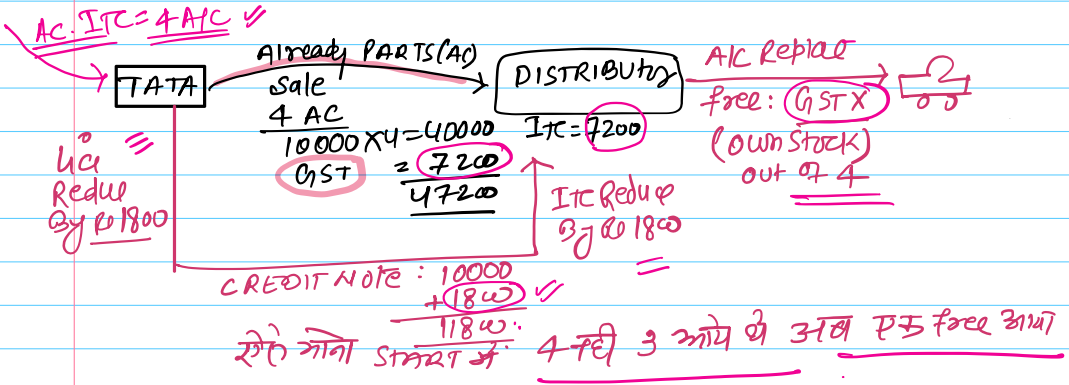 AC. ITC = 4 A/C ✓
TATA
Already PARTS(AC)
Sale
4 AC
10000 X 4 = 40000
GST = 7200
47200
DISTRIBUTOR
ITC = 7200
A/C Replace
free: GST X
(own stock)
out of 4
Reduce
By Rs 1800
ITC Reduce
By Rs 1800
CREDIT NOTE : 10000
+ 1800 ✓
11800.
ऐसे मानो START में 4 नही 3 आये थे अब एक free आया